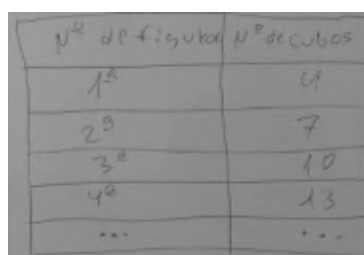 Nº de figura Nº de cubos
1ª 4
2ª 7
3ª 10
4ª 13
... ...